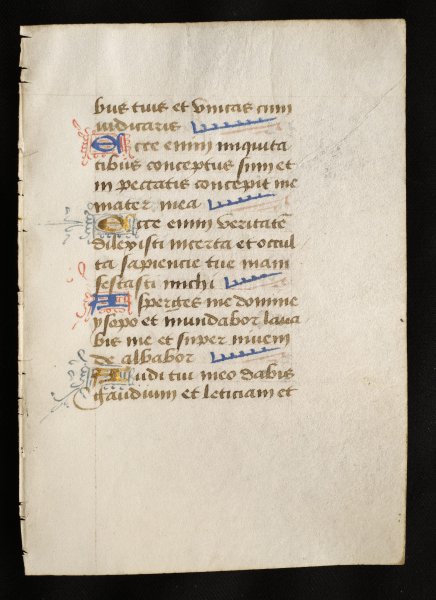 bus tuis et vincas cum
iudicaris
Ecce enim iniquita
tibus conceptus sum et
in peccatis concepit me
mater mea
Ecce enim veritatē
dilexisti incerta et occul
ta sapiencie tue mani
festasti michi
Asperges me domine
ysopo et mundabor lava
bis me et super nivem
de albabor
Auditui meo dabis
gaudium et leticiam et